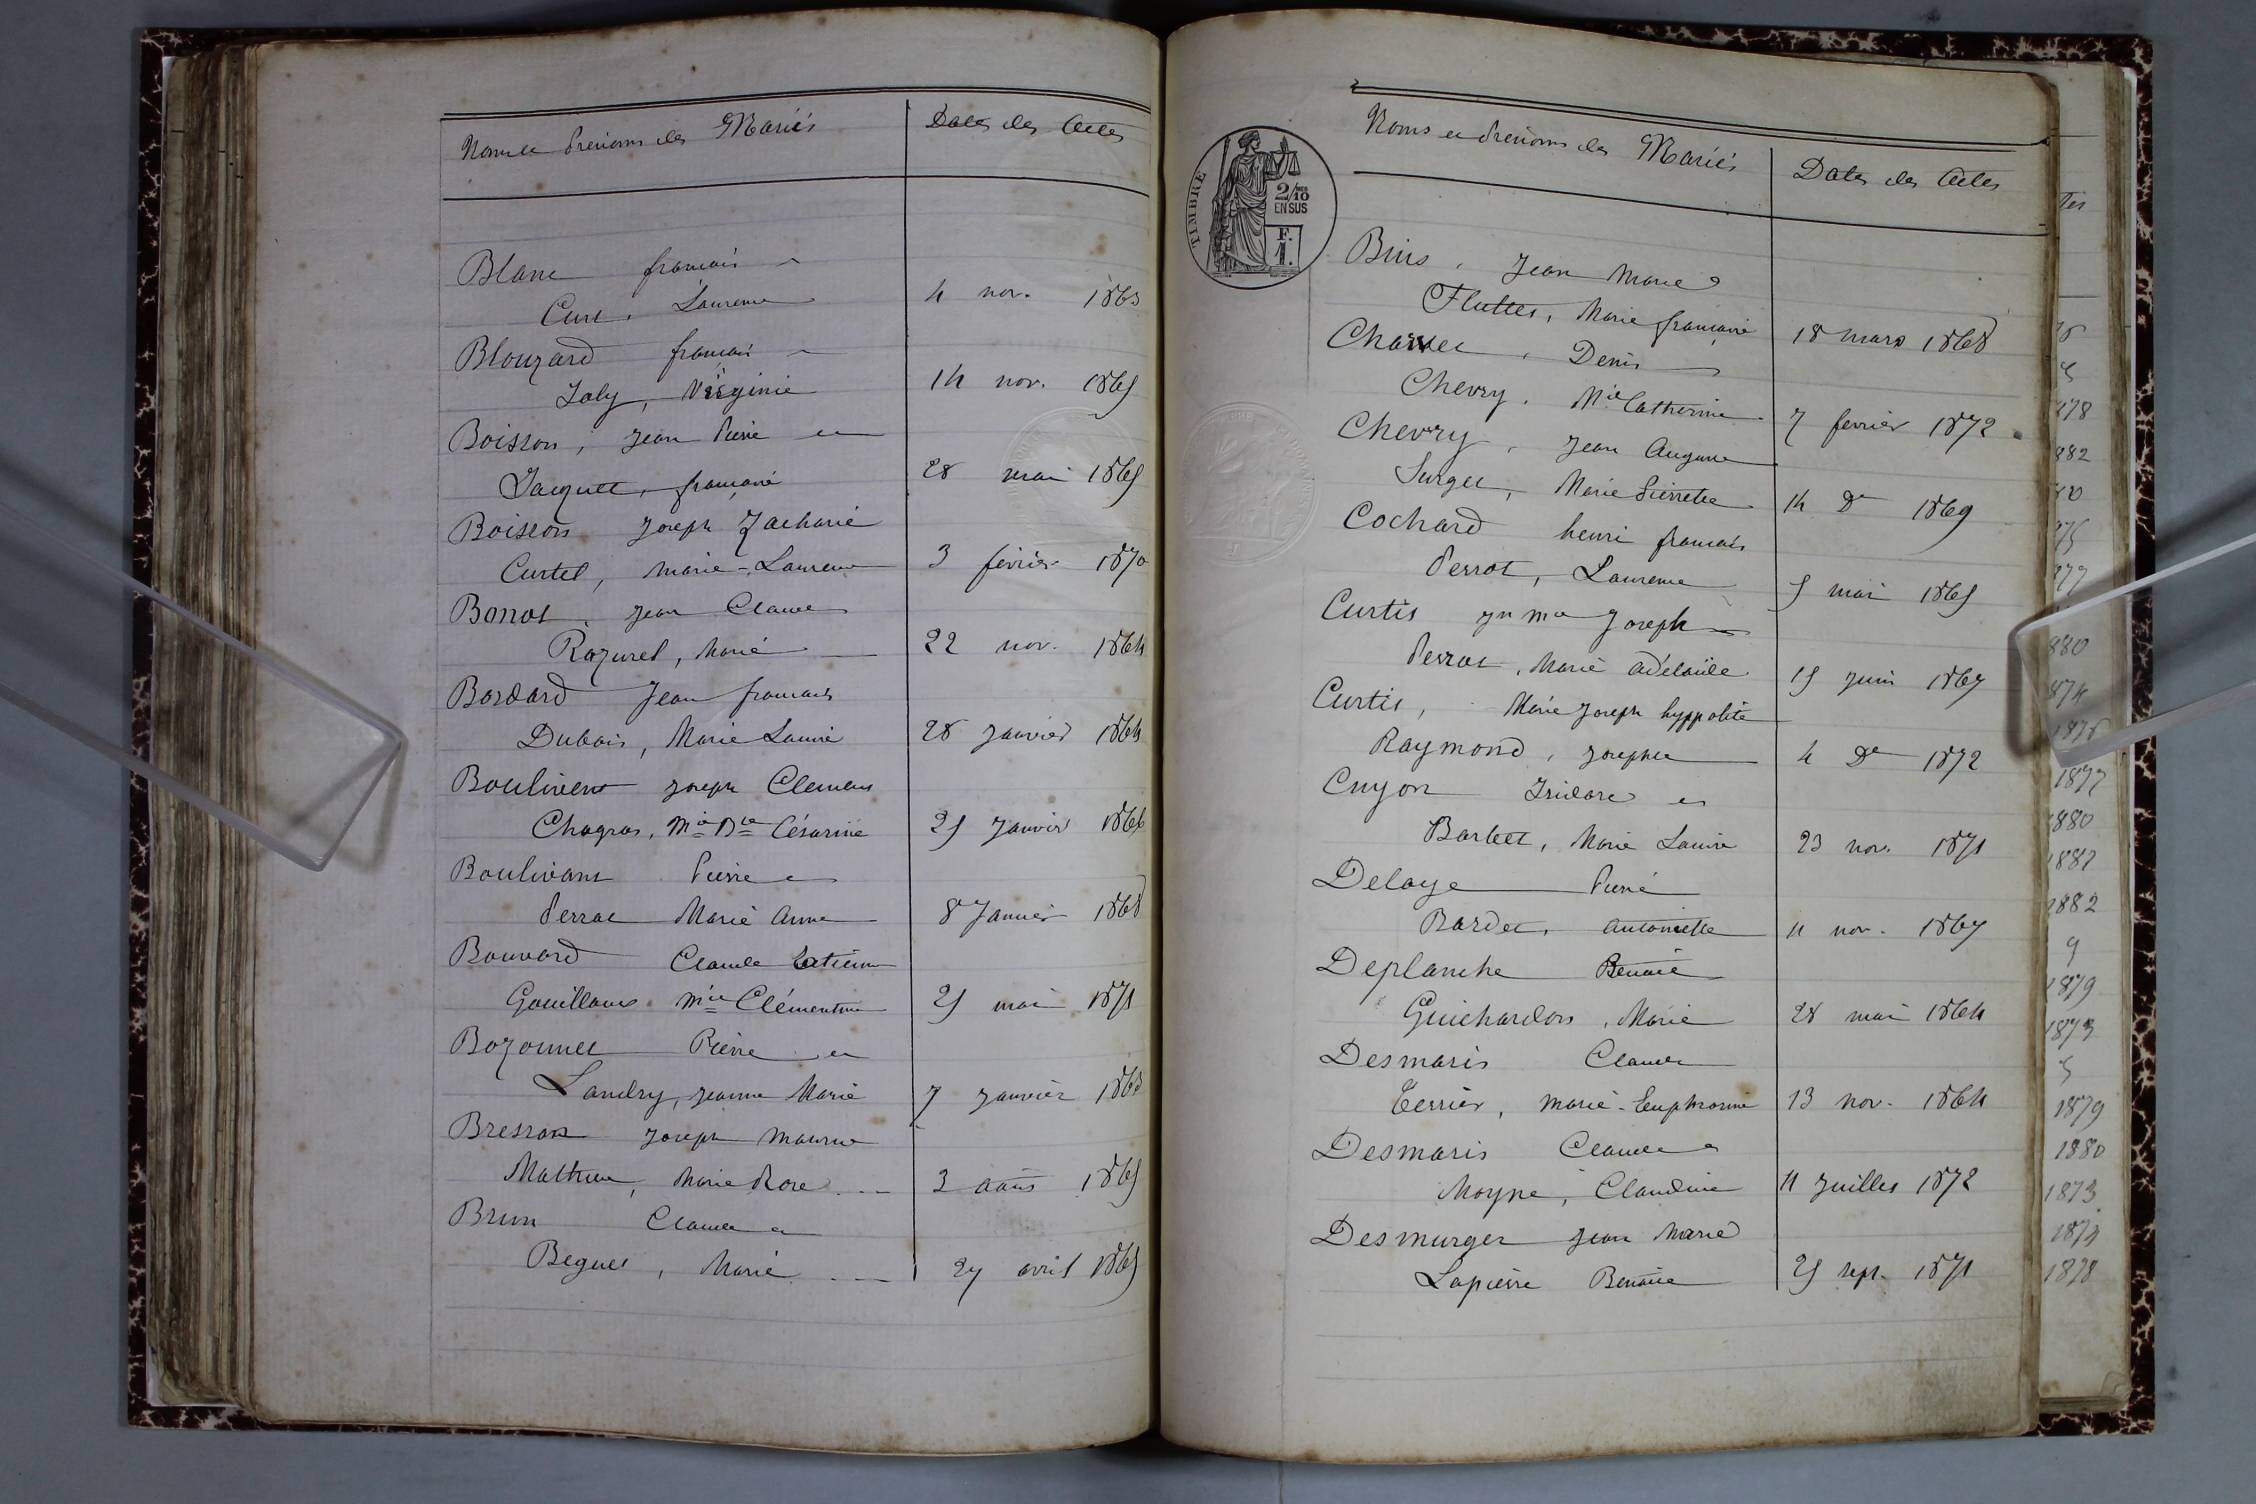 Noms et Prénoms des Mariés Dates des Actes
Blanc françois
Curt, Laurence 4 nov. 1863
Blouzard françois
Joly, Virginie 14 nov. 1865
Boisson, Jean Pierre et
Jacquet, françoise 28 mai 1865
Boisson Joseph Zacharie
Curtel, Marie-Laurence 3 février 1870
Bonot, Jean Claude
Razurel, Marie 22 nov. 1864
Bordard Jean françois
Dubois, Marie Louise 28 Janvier 1864
Boulivent Joseph Clément
Chagras, Mie Dse Césarine 25 Janvier 1866
Boulivant Pierre
Perrat Marie Anne 8 Janvier 1868
Bouvard Claude Estienne
Gouilloux Mie Clémentine 25 mai 1871
Bozonnet Pierre et
Landry, Jeanne Marie 7 Janvier 1863
Bresson Joseph Maurice
Mathieu, Marie Rose 3 août 1865
Brun Claude et
Beguet, Marie 27 avril 1865
TIMBRE
2/10
EN SUS
F.
1.
Noms et Prénoms des Mariés Dates des Actes
Jean Marie
Fluttet, Marie françoise 18 mars 1868
Charvet, Denis
Chevry, Mie Catherine 7 février 1872
Chevry, Jean Auguste
Surget, Marie Pierrette 14 De 1869
Cochard henri françois
Perrot, Laurence 5 mai 1865
Curtis Jn Mie Joseph
Perrat, Marie Adélaïde 15 Juin 1867
Curtis, Marie Joseph hyppolite
Raymond, Josephte 4 De 1872
Cuyon Isidore et
Barbet, Marie Louise 23 nov. 1871
Delaye Pierre
Bardet, Antoinette 11 nov. 1867
Deplanche Benoit
Guichardon, Marie 28 mai 1864
Desmaris Claude
Terrier, Marie-Euphrosine 13 nov. 1864
Desmaris Claude
Moyne, Claudine 11 Juillet 1872
Desmurger Jean Marie
Lapierre Benoîte 25 sept. 1871
1877
1880
1882
1882
1879
1873
1879
1880
1873
1874
1878